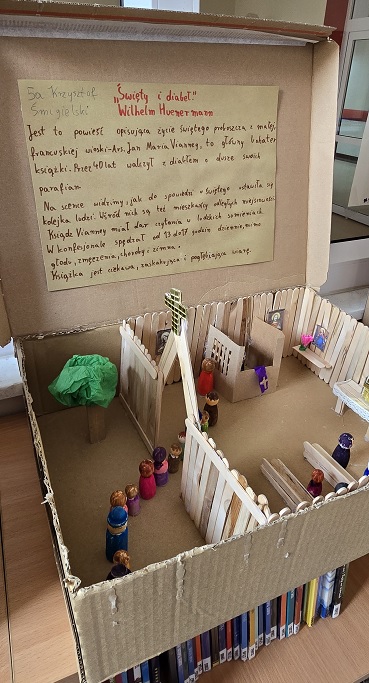 5a Krzysztof
Śmigielski
„Święty i diabeł"
Wilhelm Huenermann
Jest to powieść opisująca życie świętego proboszcza z małej,
francuskiej wioski-Ars. Jan Maria Vianney, to główny bohater
książki. Przez 40 lat walczył z diabłem o dusze swoich
parafian.
Na scence widzimy, jak do spowiedzi u świętego ustawiła się
kolejka ludzi. Wśród nich są też mieszkańcy odległych miejscowości.
Ksiądz Vianney miał dar czytania w ludzkich sumieniach.
W konfesjonale spędzał od 13 do 17 godzin dziennie, mimo
głodu, zmęczenia, choroby i zimna.
Książka jest ciekawa, zaskakująca i pogłębiająca wiarę.